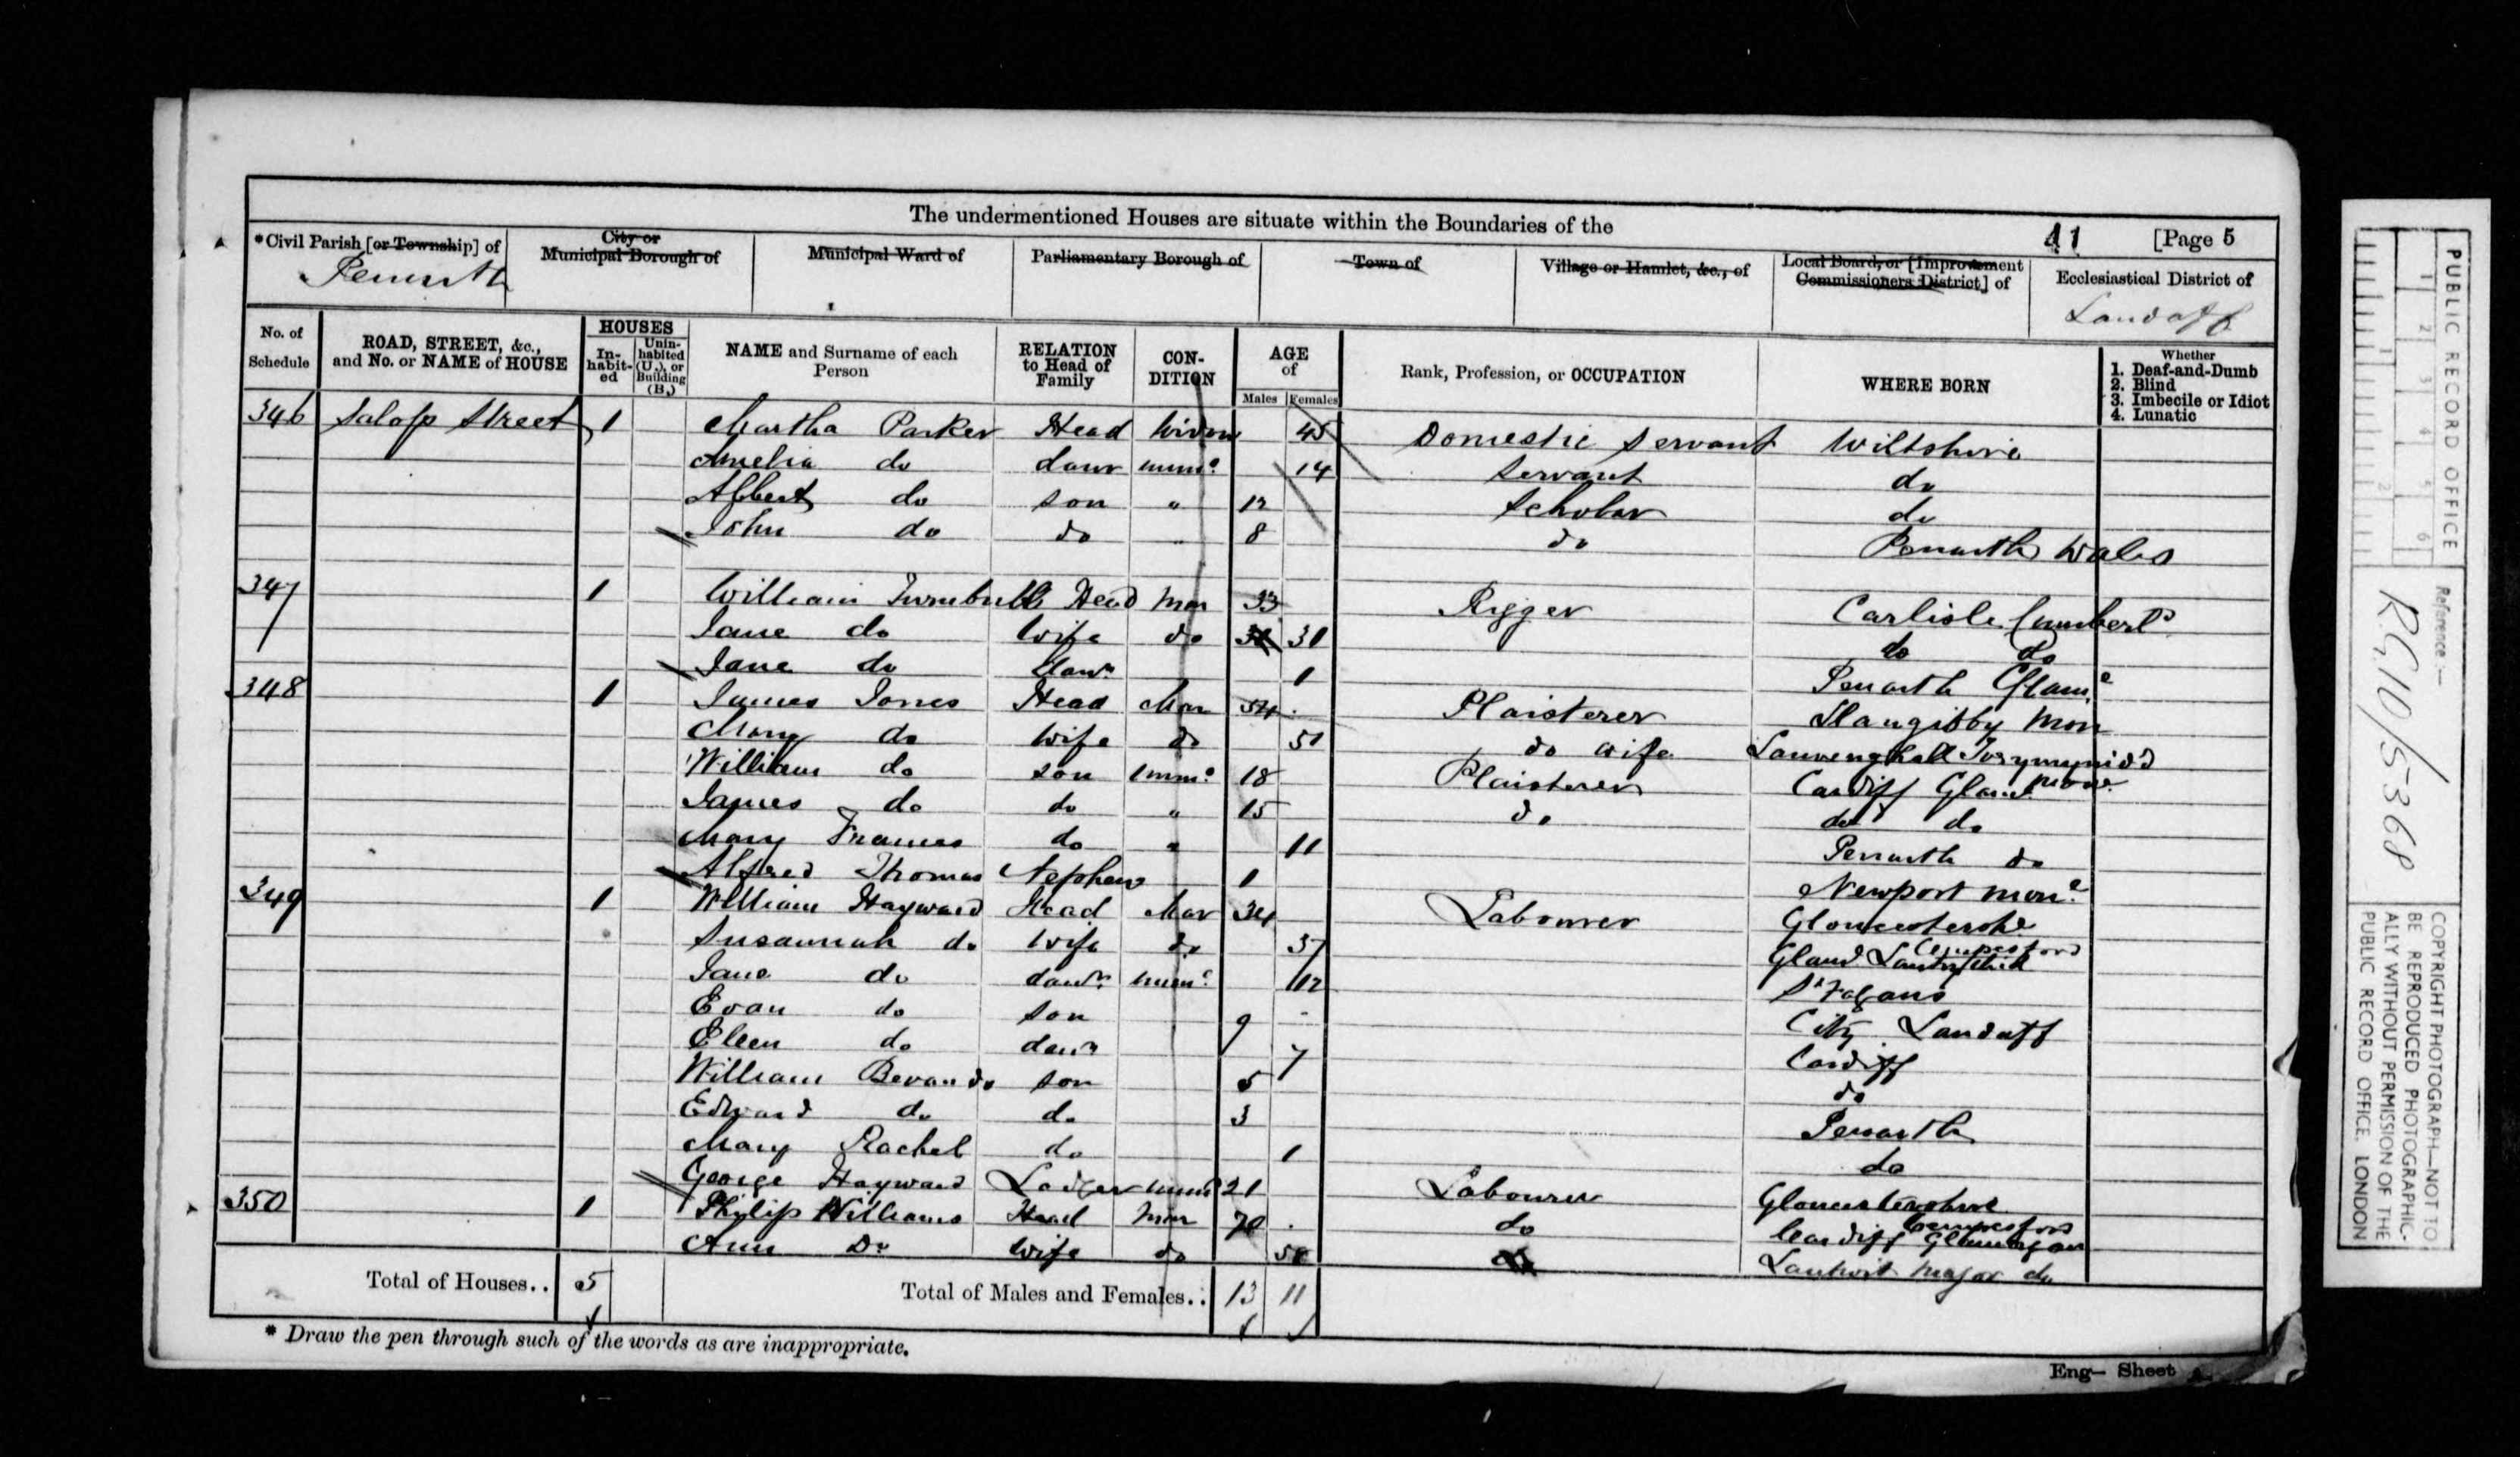 The undermentioned Houses are situate within the Boundaries of the
41 [Page 5
*Civil Parish [or Township] of
City or Municipal Borough of
Municipal Ward of
Parliamentary Borough of
Town of
Village or Hamlet, &c., of
Local Board, or [Improvement Commissioners District] of
Ecclesiastical District of
Penarth
Landaff
No. of Schedule
ROAD, STREET, &c., and No. or NAME of HOUSE
HOUSES
In-habit-ed
Unin-habited (U.), or Building (B.)
NAME and Surname of each Person
RELATION to Head of Family
CON-DITION
AGE of
Males Females
Rank, Profession, or OCCUPATION
WHERE BORN
Whether
1. Deaf-and-Dumb
2. Blind
3. Imbecile or Idiot
4. Lunatic
346 Salop Street 1 Martha Parker Head Widow 45 Domestic Servant Wiltshire
Amelia do daur unmd 14 Servant do
Albert do son " 12 Scholar do
John do do " 8 do Penarth Wales
347 1 William Turnbull Head Mar 33 Rigger Carlisle Cumberld
Jane do Wife do 31 do do
Jane do daur 1 Penarth Glam
348 1 James Jones Head Mar 54 Plaisterer Llangibby Mon
Mary do Wife do 51 do wife
William do son unmd 18 Plaisterer Cardiff Glam
James do do " 15 do do do
Mary Frances do " 11 Penarth do
Alfred Thomas Nephew 1 Newport Mon
349 1 William Hayward Head Mar 34 Labourer Gloucestersh
Susannah do Wife do 37 Glam
Jane do daur unmd 12 St Fagans
Evan do son 9 City Landaff
Eleen do daur 7 Cardiff
William Bevan do son 5 do
Edward do do 3 Penarth
Mary Rachel do 1 do
George Hayward Lodger unmd 21 Labourer Gloucestershire
350 1 Philip Williams Head Mar 70 do Cardiff Glamorgan
Ann Do Wife do 58 do Lantwit Major do
Total of Houses.. 5
Total of Males and Females.. 13 11
* Draw the pen through such of the words as are inappropriate.
Eng— Sheet
PUBLIC RECORD OFFICE
1 2 3 4 5 6
1 2
Reference:—
R.G.10/5368
COPYRIGHT PHOTOGRAPH—NOT TO
BE REPRODUCED PHOTOGRAPHIC-
ALLY WITHOUT PERMISSION OF THE
PUBLIC RECORD OFFICE, LONDON